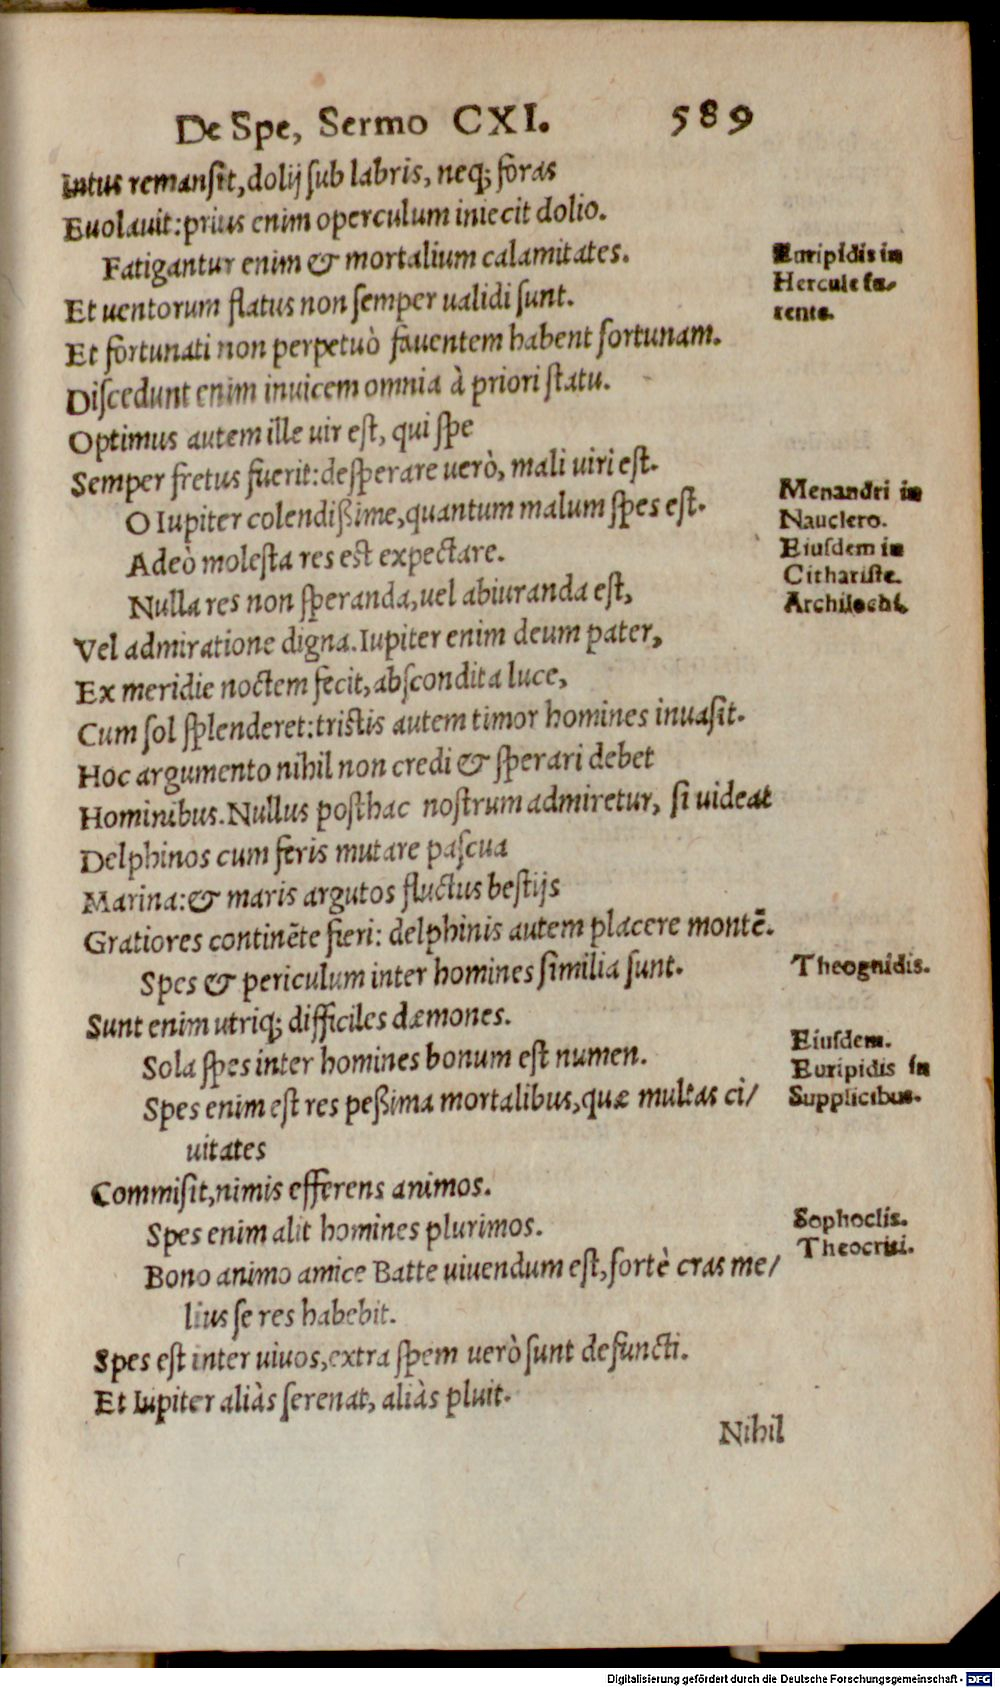 De Spe, Sermo CXI. 589
Intus remansit, dolij sub labris, neq; foras
Euolauit: prius enim operculum iniecit dolio.
Fatigantur enim & mortalium calamitates.
Euripidis in
Hercule fu-
rente.
Et uentorum flatus non semper ualidi sunt.
Et fortunati non perpetuò fauentem habent fortunam.
Discedunt enim inuicem omnia à priori statu.
Optimus autem ille uir est, qui spe
Semper fretus fuerit: desperare uerò, mali uiri est.
O Iupiter colendißime, quantum malum spes est.
Menandri in
Nauclero.
Adeò molesta res est expectare.
Eiusdem in
Cithariste.
Nulla res non speranda, uel abiuranda est,
Archilochi.
Vel admiratione digna. Iupiter enim deum pater,
Ex meridie noctem fecit, abscondita luce,
Cum sol splenderet: tristis autem timor homines inuasit.
Hoc argumento nihil non credi & sperari debet
Hominibus. Nullus posthac nostrum admiretur, si uideat
Delphinos cum feris mutare pascua
Marina: & maris argutos fluctus bestijs
Gratiores continẽte fieri: delphinis autem placere montẽ.
Spes & periculum inter homines similia sunt.
Theognidis.
Sunt enim utriq; difficiles dæmones.
Sola spes inter homines bonum est numen.
Eiusdem.
Spes enim est res peßima mortalibus, quæ multas ci/
uitates
Euripidis in
Supplicibus.
Commisit, nimis efferens animos.
Spes enim alit homines plurimos.
Sophoclis.
Bono animo amice Batte uiuendum est, fortè cras me/
lius se res habebit.
Theocriti.
Spes est inter uiuos, extra spem uerò sunt defuncti.
Et Iupiter aliàs serenat, aliàs pluit.
Nihil
Digitalisierung gefördert durch die Deutsche Forschungsgemeinschaft - DFG